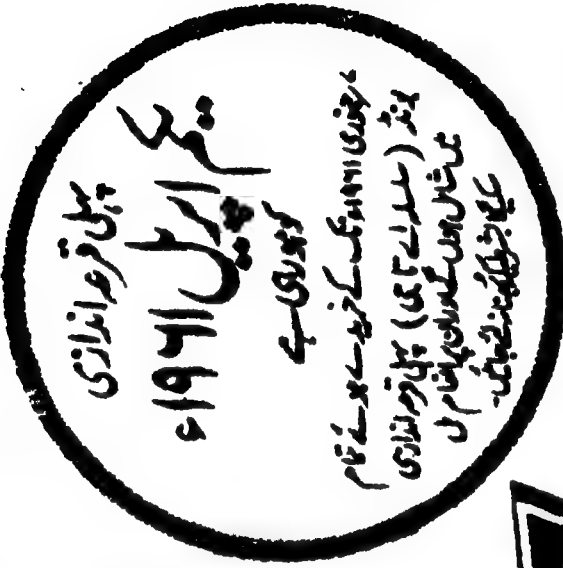 پہلی قرعہ اندازی
یکم اپریل ۱۹۶۱ء
کو ہو رہی ہے
جنوری ۱۹۶۱ء تک کے خریدے ہوئے تمام
بونڈ (سلسلہ اے تا سی) پہلی قرعہ اندازی
میں شامل ہوں گے اور ان پر انعام مل